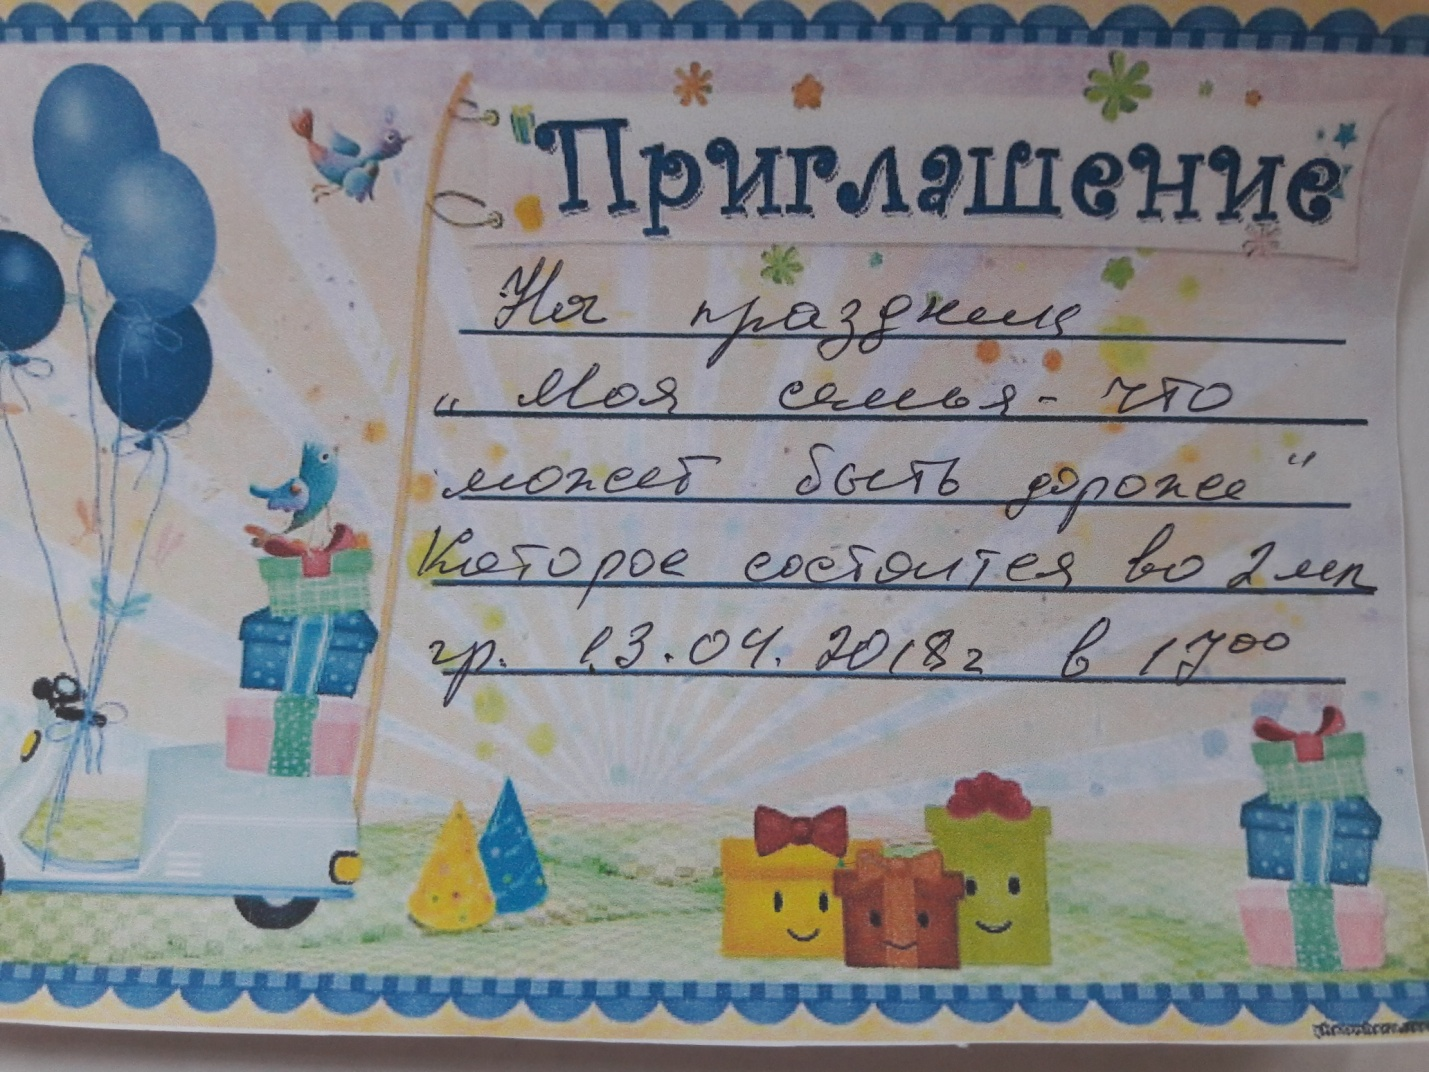 Приглашение
На праздник
„ Моя семья - что
может быть дороже "
Которое состоится во 2 мл
гр. 13.04.2018г в 17⁰⁰